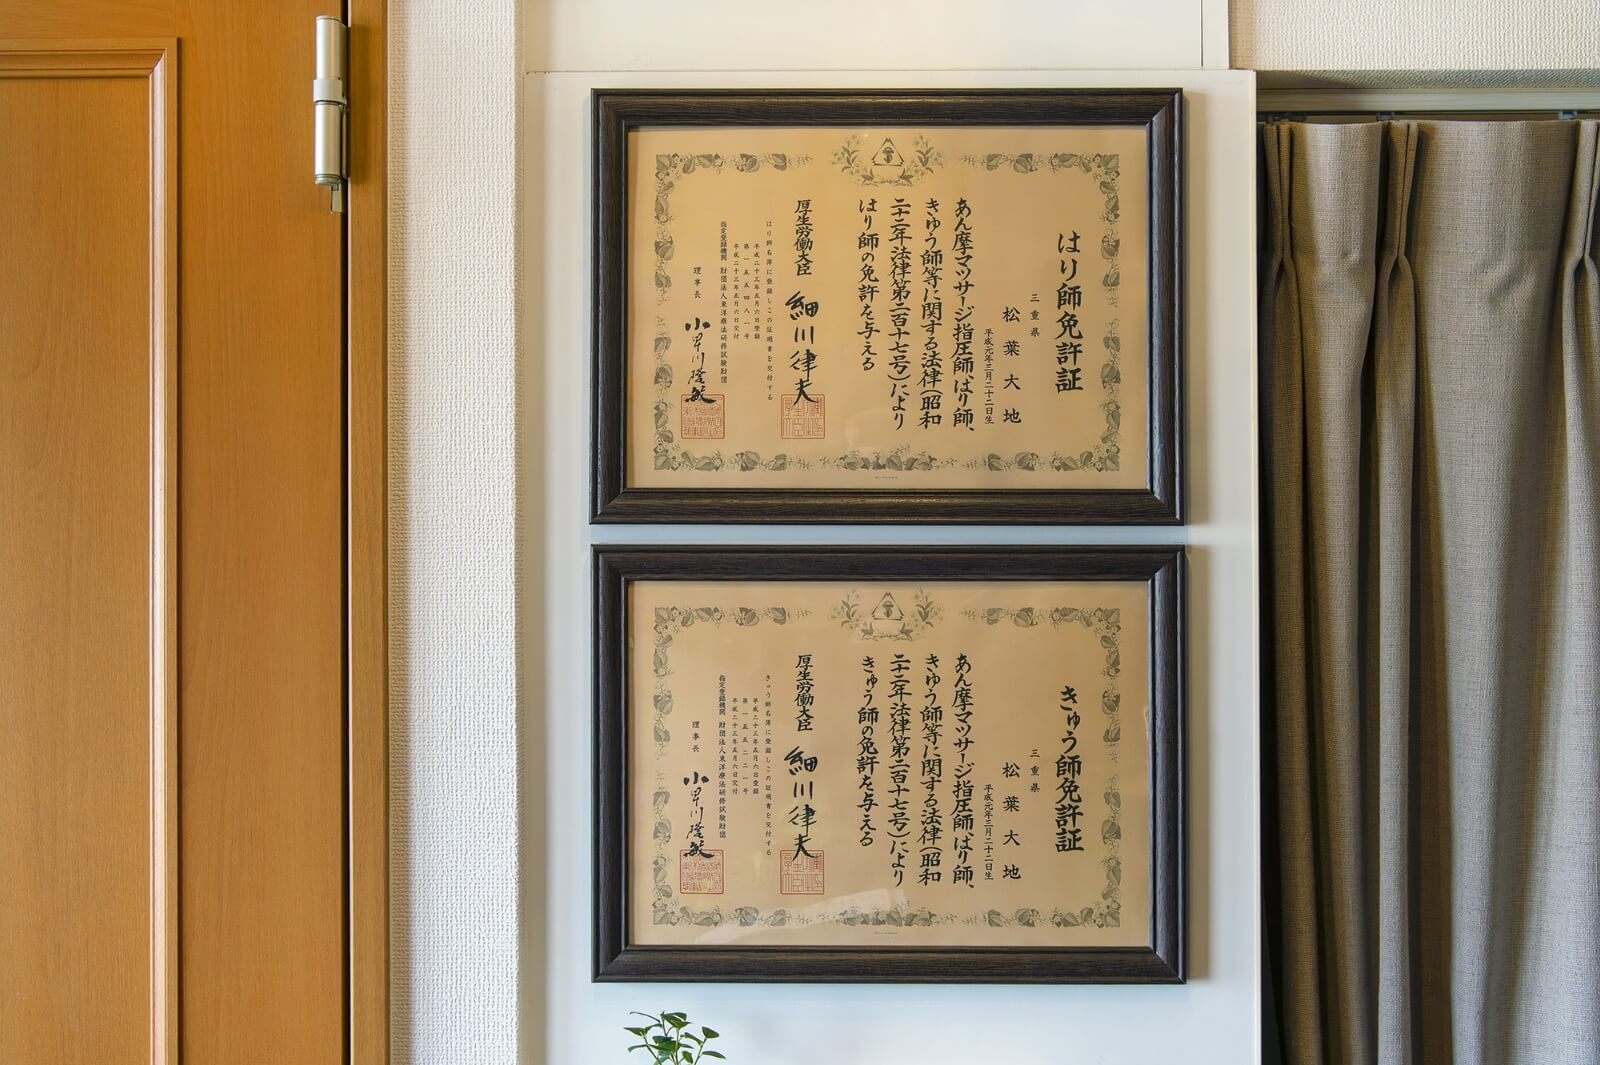 はり師免許証
三重県
松葉大地
平成元年三月二十二日生
あん摩マツサージ指圧師、はり師、
きゆう師等に関する法律(昭和
二十二年法律第二百十七号)により
はり師の免許を与える
厚生労働大臣 細川律夫
はり師名簿に登録しこの証明書を交付する
平成二十三年五月六日登録
第一五五四八一号
平成二十三年五月六日交付
指定登録機関 財団法人東洋療法研修試験財団
理事長 小早川隆敏
きゅう師免許証
三重県
松葉大地
平成元年三月二十二日生
あん摩マツサージ指圧師、はり師、
きゆう師等に関する法律(昭和
二十二年法律第二百十七号)により
きゅう師の免許を与える
厚生労働大臣 細川律夫
きゅう師名簿に登録しこの証明書を交付する
平成二十三年五月六日登録
第一五五二二一号
平成二十三年五月六日交付
指定登録機関 財団法人東洋療法研修試験財団
理事長 小早川隆敏